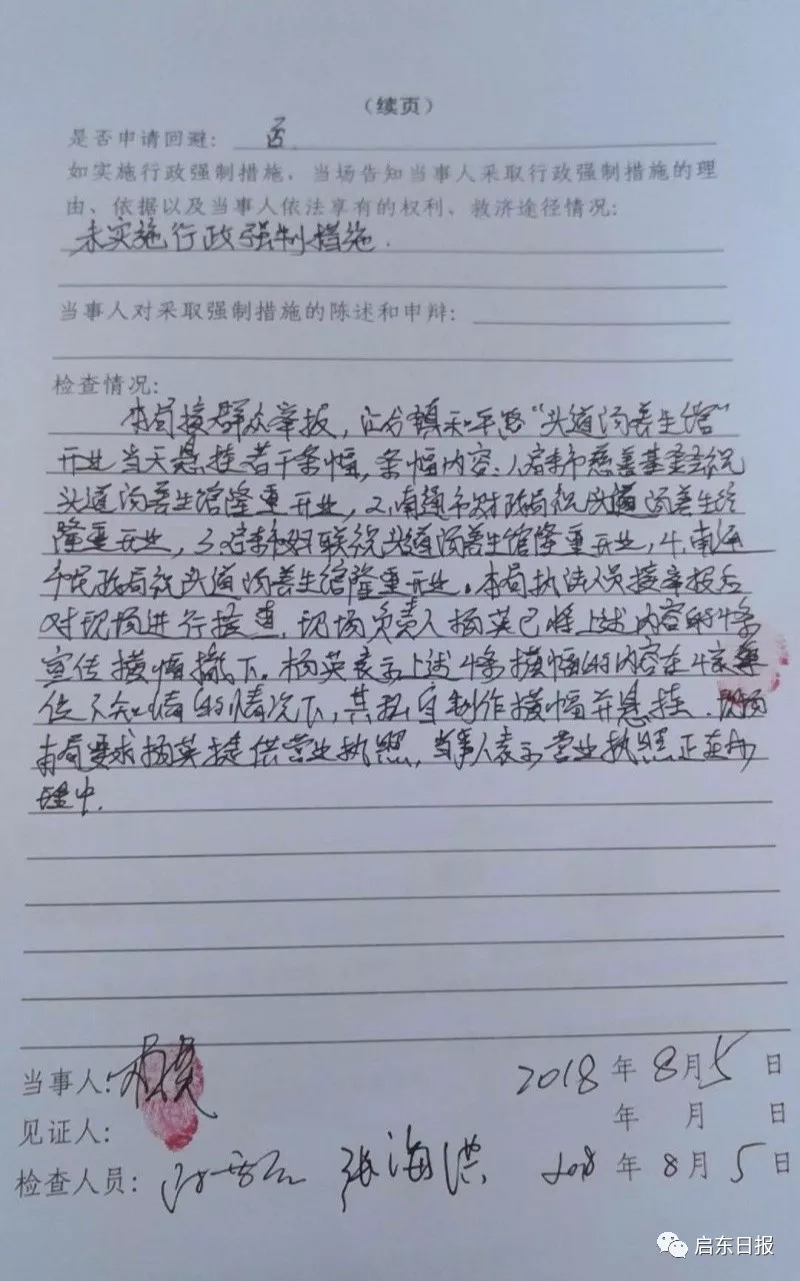 （续页）
是否申请回避： 否
如实施行政强制措施，当场告知当事人采取行政强制措施的理
由、依据以及当事人依法享有的权利、救济途径情况：
未实施行政强制措施.
当事人对采取强制措施的陈述和申辩：
检查情况：
本局接群众举报，汇龙镇和平路“头道汤养生馆”
开业当天悬挂若干条幅，条幅内容：1、启东市慈善基金会祝
头道汤养生馆隆重开业，2、南通市财政局祝头道汤养生馆
隆重开业，3、启东市妇联祝头道汤养生馆隆重开业，4、南通
市民政局祝头道汤养生馆隆重开业。本局执法人员接举报后
对现场进行检查，现场负责人杨英已将上述内容的4条
宣传横幅撤下。杨英表示上述4条横幅的内容在4家单
位不知情的情况下，其私自制作横幅并悬挂.现场
本局要求杨英提供营业执照，当事人表示营业执照正在办
理中.
当事人： 2018年8月5日
见证人： 年 月 日
检查人员： 张海洪 2018年8月5日
启东日报